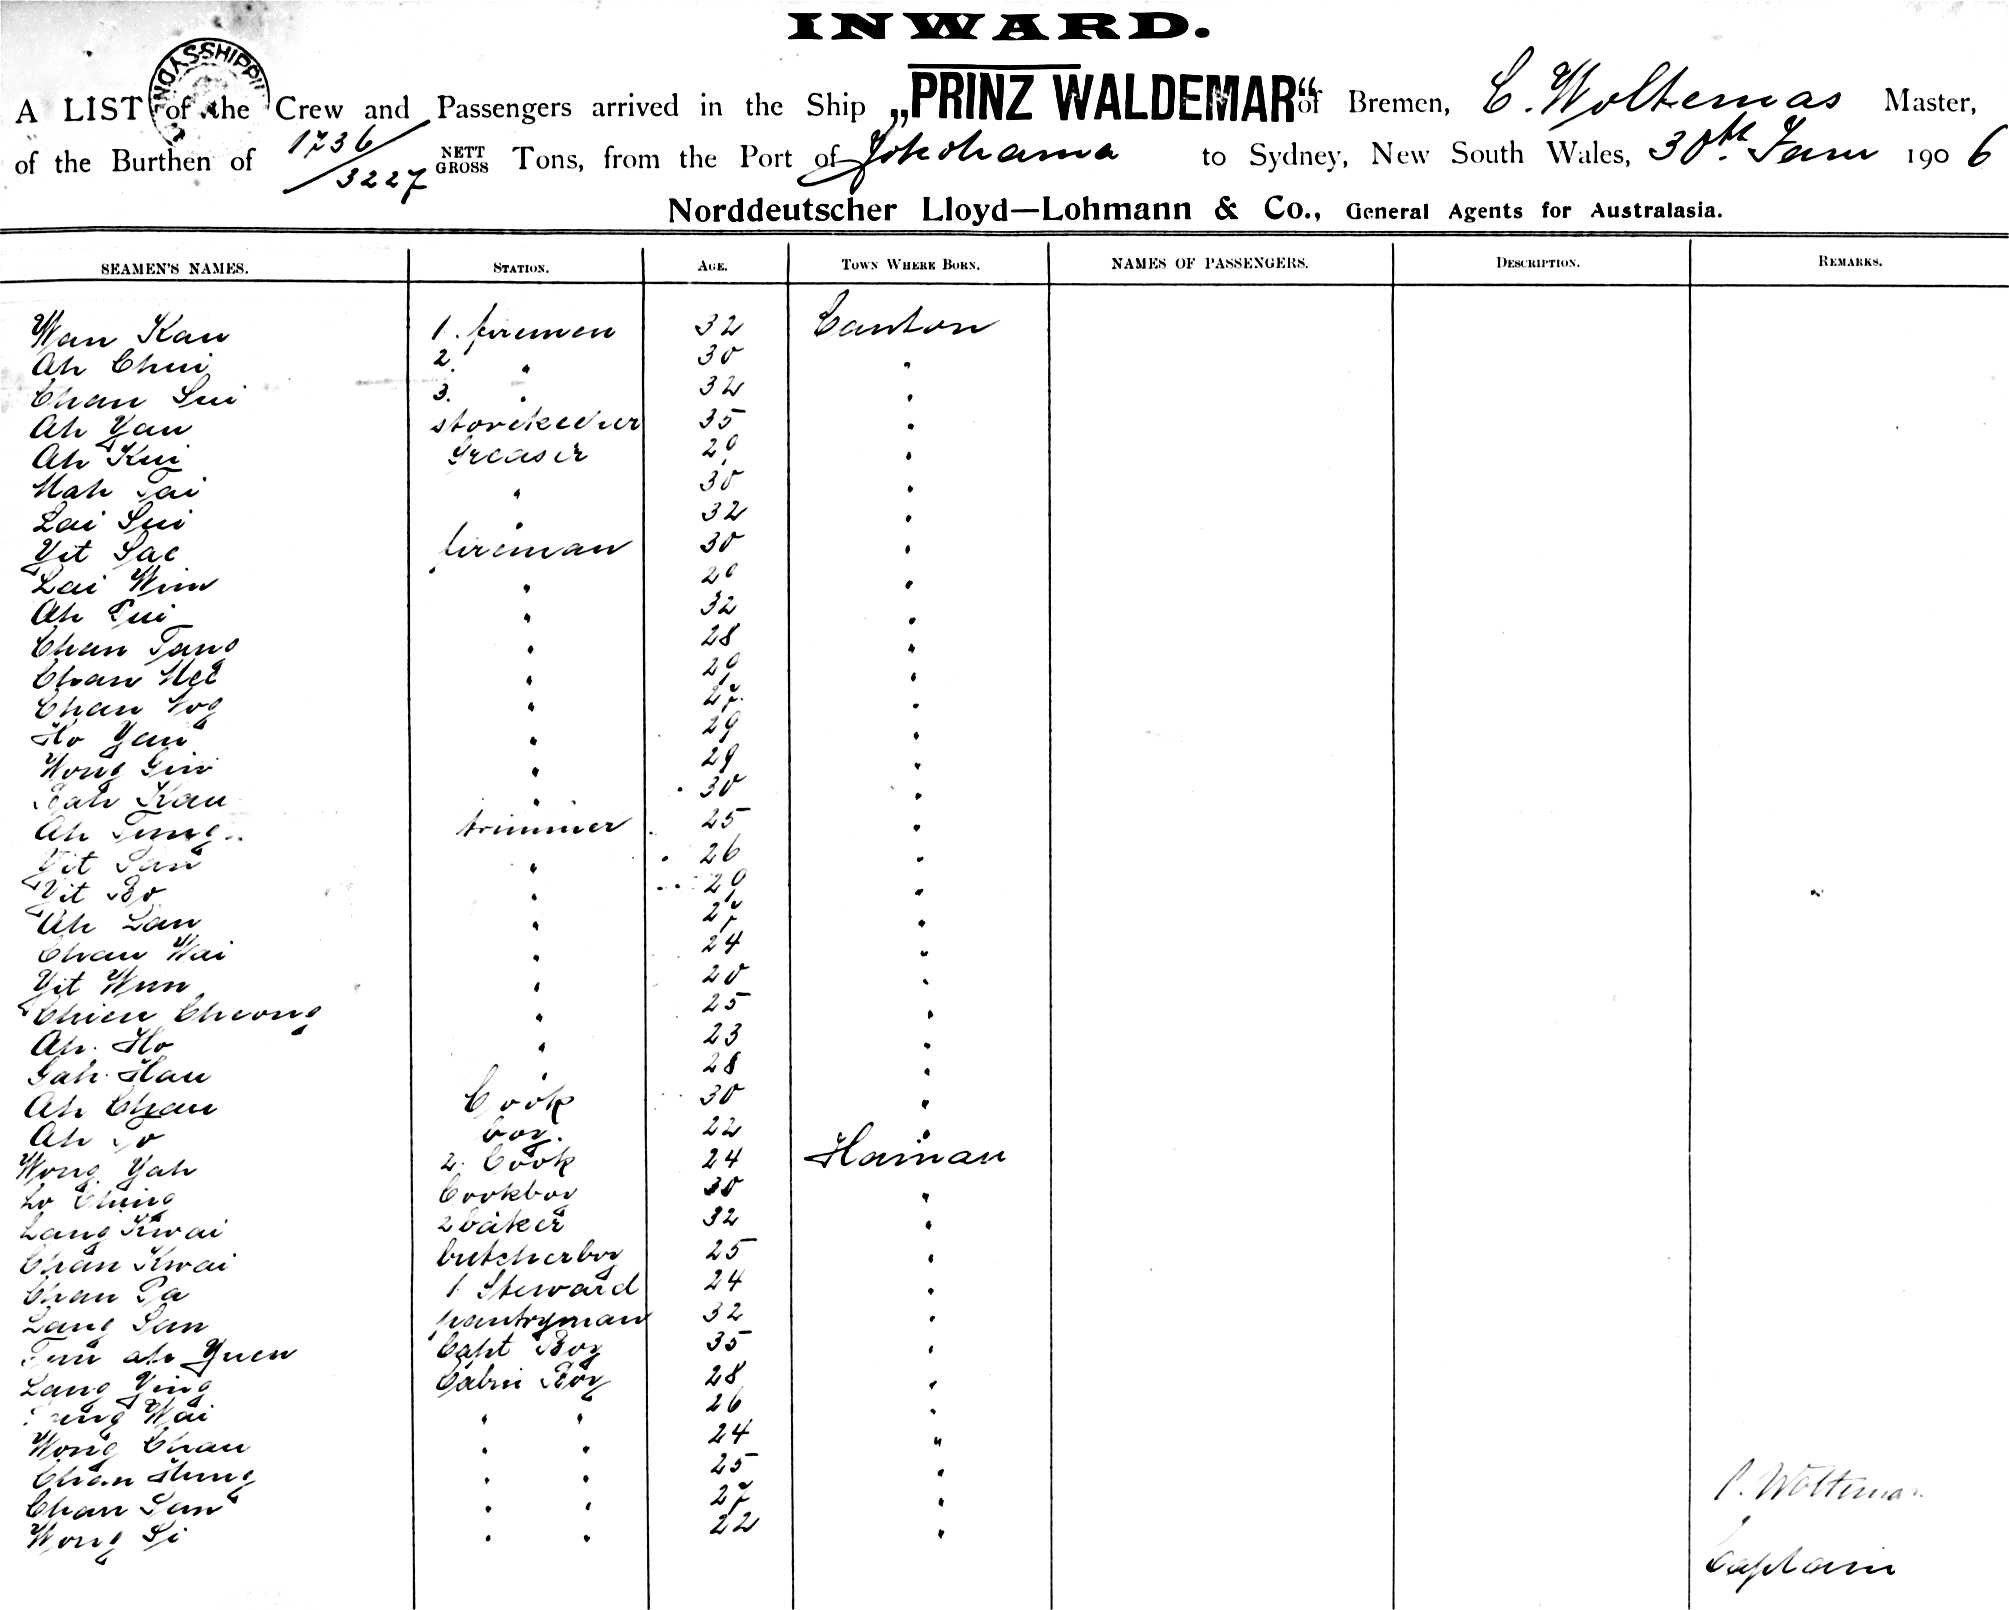 INWARD.
SYDNEY SHIPPI
A LIST of the Crew and Passengers arrived in the Ship „PRINZ WALDEMAR“ of Bremen, C. Woltemas Master,
of the Burthen of 1736/3227 NETT GROSS Tons, from the Port of Yokohama to Sydney, New South Wales, 30th Janu 1906
Norddeutscher Lloyd—Lohmann & Co., General Agents for Australasia.
SEAMEN'S NAMES. STATION. AGE. TOWN WHERE BORN. NAMES OF PASSENGERS. DESCRIPTION. REMARKS.
Wan Kau 1. firemen 32 Canton
Ah Chui 2. " 30 "
Chan Sui 3. " 32 "
Ah Yau storekeeper 35 "
Ah Kui Greaser 29 "
Mah Tai " 30 "
Lai Sui " 32 "
Yit Sac fireman 30 "
Lai Wim " 29 "
Ah Sui " 32 "
Chan Tang " 28 "
Chan " 29 "
Chan " 27 "
Ho Yau " 29 "
Wong Gin " 29 "
Kau " 30 "
Ah Tung trimmer 25 "
Yit San " 26 "
Yit Bo " 29 "
Ah Lau " 27 "
Chan Wai " 24 "
Yit Wun " 20 "
Chien Cheong " 25 "
Ah. Ho " 23 "
Gah. Hau " 28 "
Ah Chau Cook 30 "
Ah So boy. 22 "
Wong Yah 2. Cook 24 Hainau
Lo Ching Cookboy 30 "
Lang Kwai 2 baker 32 "
Chan Kwai butcherboy 25 "
Chan Pa 1 Steward 24 "
Lang San pantryman 32 "
ah Yuen Capt Boy 35 "
Lang Ying Cabin Boy 28 "
Wai " " 26 "
Wong Chau " " 24 "
Chan Hung " " 25 "
Chan San " " 27 "
Wong Si " " 22 "
C. Woltemas
Captain